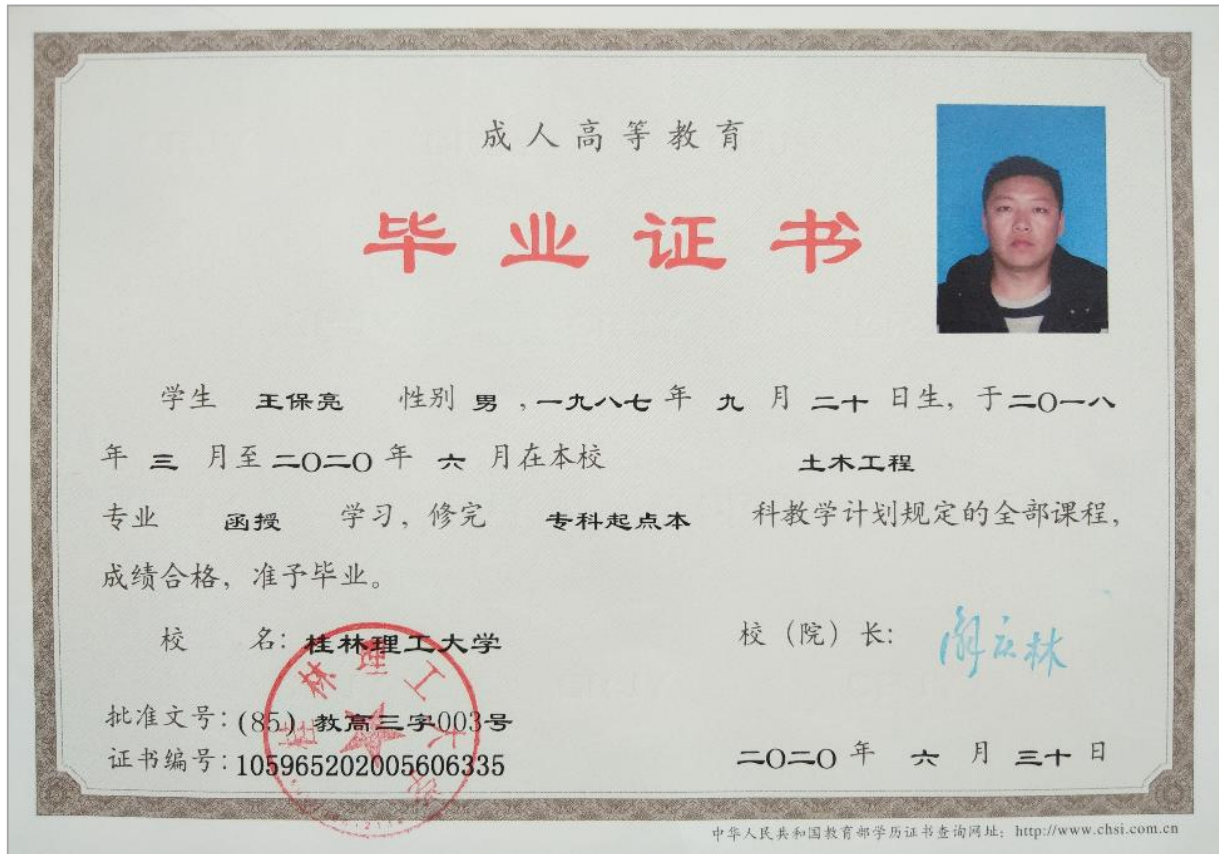 成人高等教育
毕业证书
学生 王保亮 性别 男 ,一九八七 年 九 月 二十 日生, 于二〇一八
年 三 月至 二〇二〇 年 六 月在本校 土木工程
专业 函授 学习, 修完 专科起点本 科教学计划规定的全部课程,
成绩合格, 准予毕业。
校 名: 桂林理工大学 校 (院) 长: 解庆林
批准文号: (85) 教高三字003号
证书编号: 105965202005606335 二〇二〇 年 六 月 三十 日
桂林理工大学
中华人民共和国教育部学历证书查询网址: http://www.chsi.com.cn